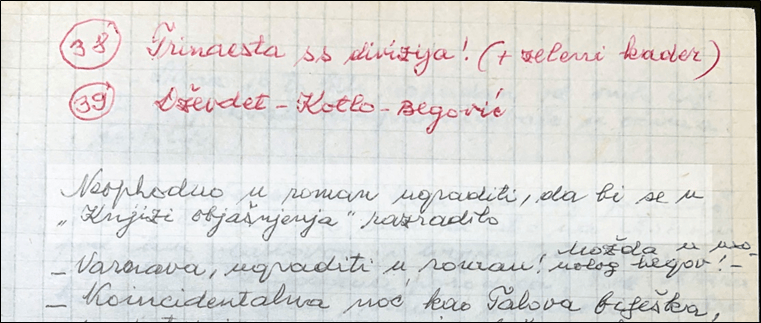 38 Trinaesta ss divizija! (+ zeleni kader)
39 Dževdet - Kotlo - Begović
Neophodno u roman ugraditi, da bi se u
"Knjizi objašnjenja" razradilo
možda u mo-
- Varnava, ugraditi u roman! nolog begov! -
- Koincidentalna noć kao Talova bilješka,